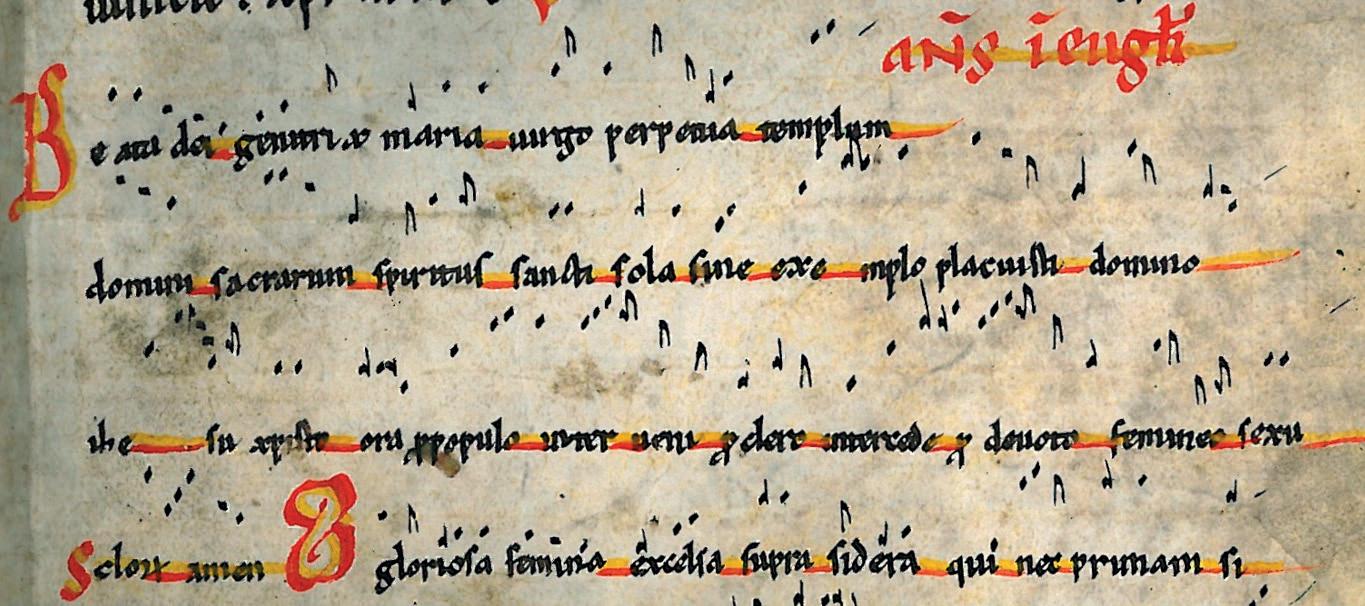 añs i eugli
Beata dei genitrix maria uirgo perpetua templum
domini sacrarium spiritus sancti sola sine exe mplo placuisti domino
ihe su xpisto ora ppopulo inter ueni p clero intercede p deuoto femineo sexu
Sclorx amen O gloriosa feminia excelsa supra sidera qui nec primam si